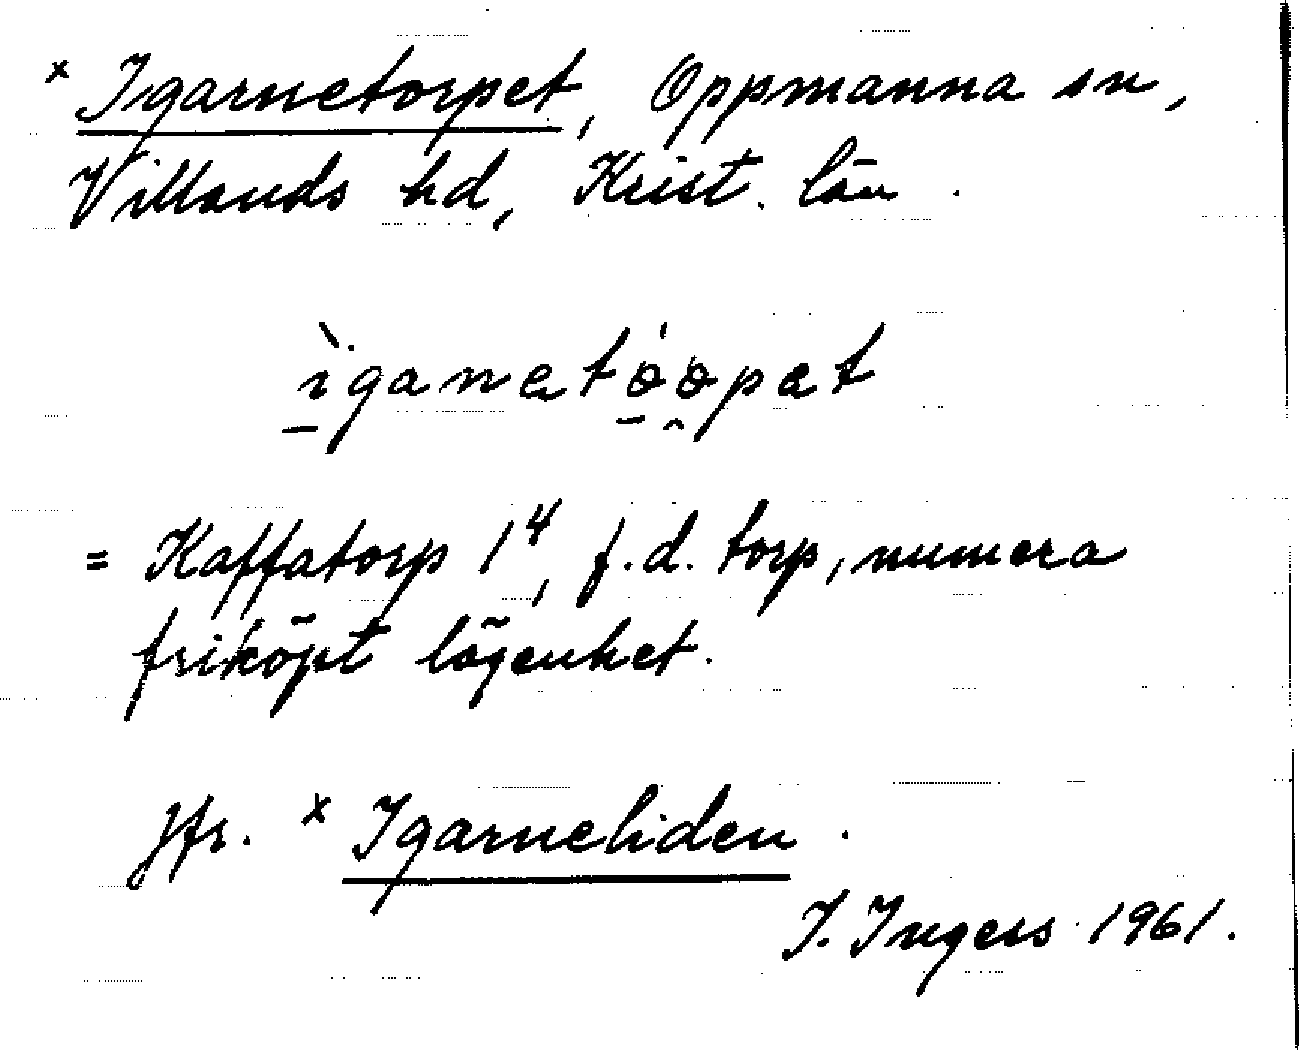 × Igarnetorpet, Oppmanna sn,
Villands hd, Krist. län.
ìganetǫ́ǫpət
= Kaffatorp 1⁴, f.d. torp, numera
friköpt lägenhet.
Jfr. × Igarneliden.
I. Ingers 1961.